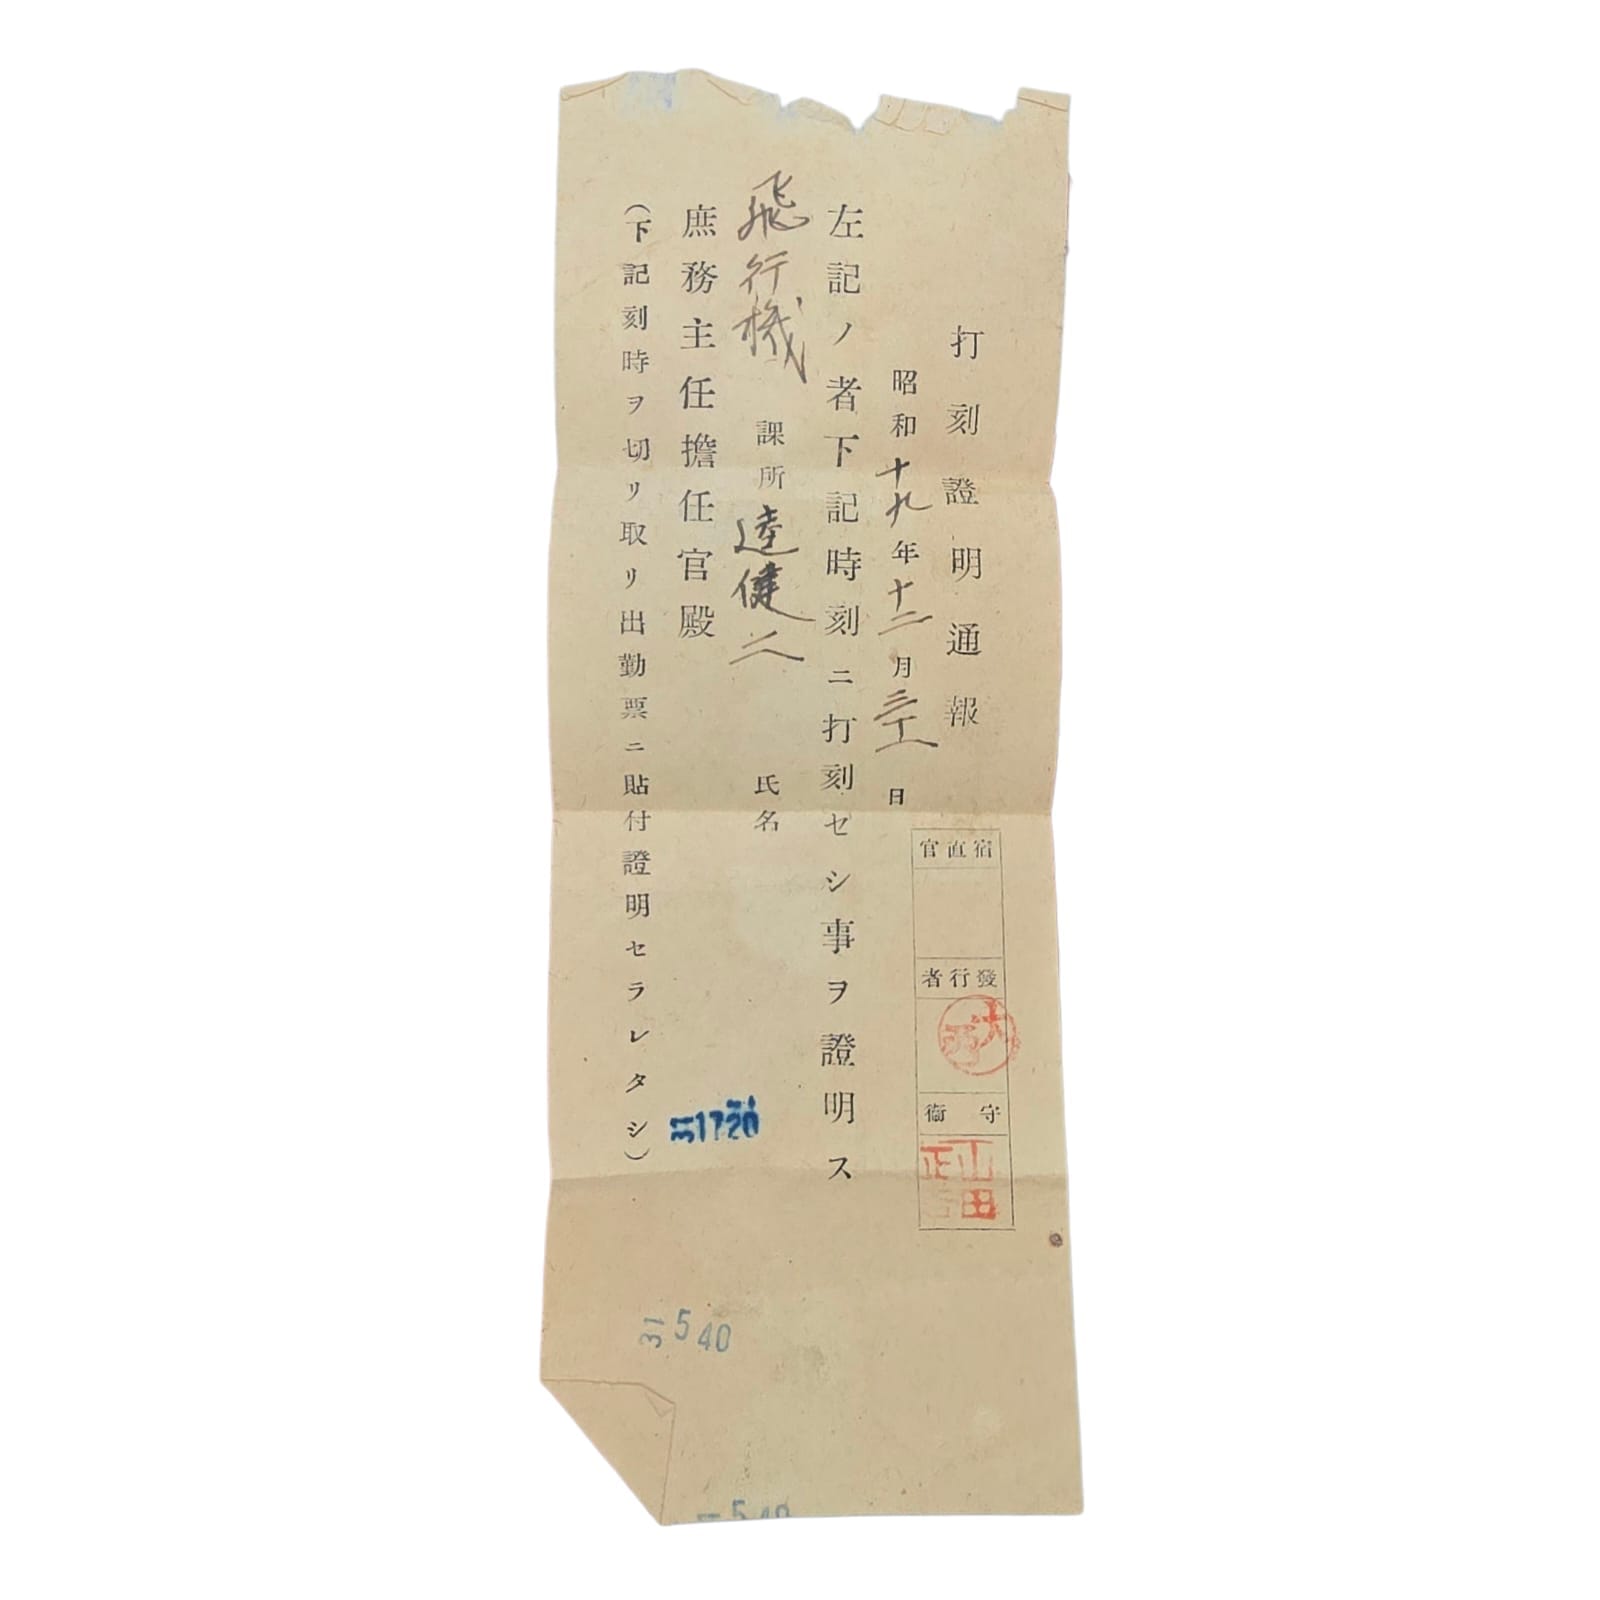 打刻證明通報
昭和十九年十二月三十一日
宿直官
發行者
大西
守衞
山田正
左記ノ者下記時刻ニ打刻セシ事ヲ證明ス
飛行機課所 逵健二 氏名
庶務主任擔任官殿
(下記刻時ヲ切リ取リ出勤票ニ貼付證明セラレタシ)
31 1720
31 5 40
5 40